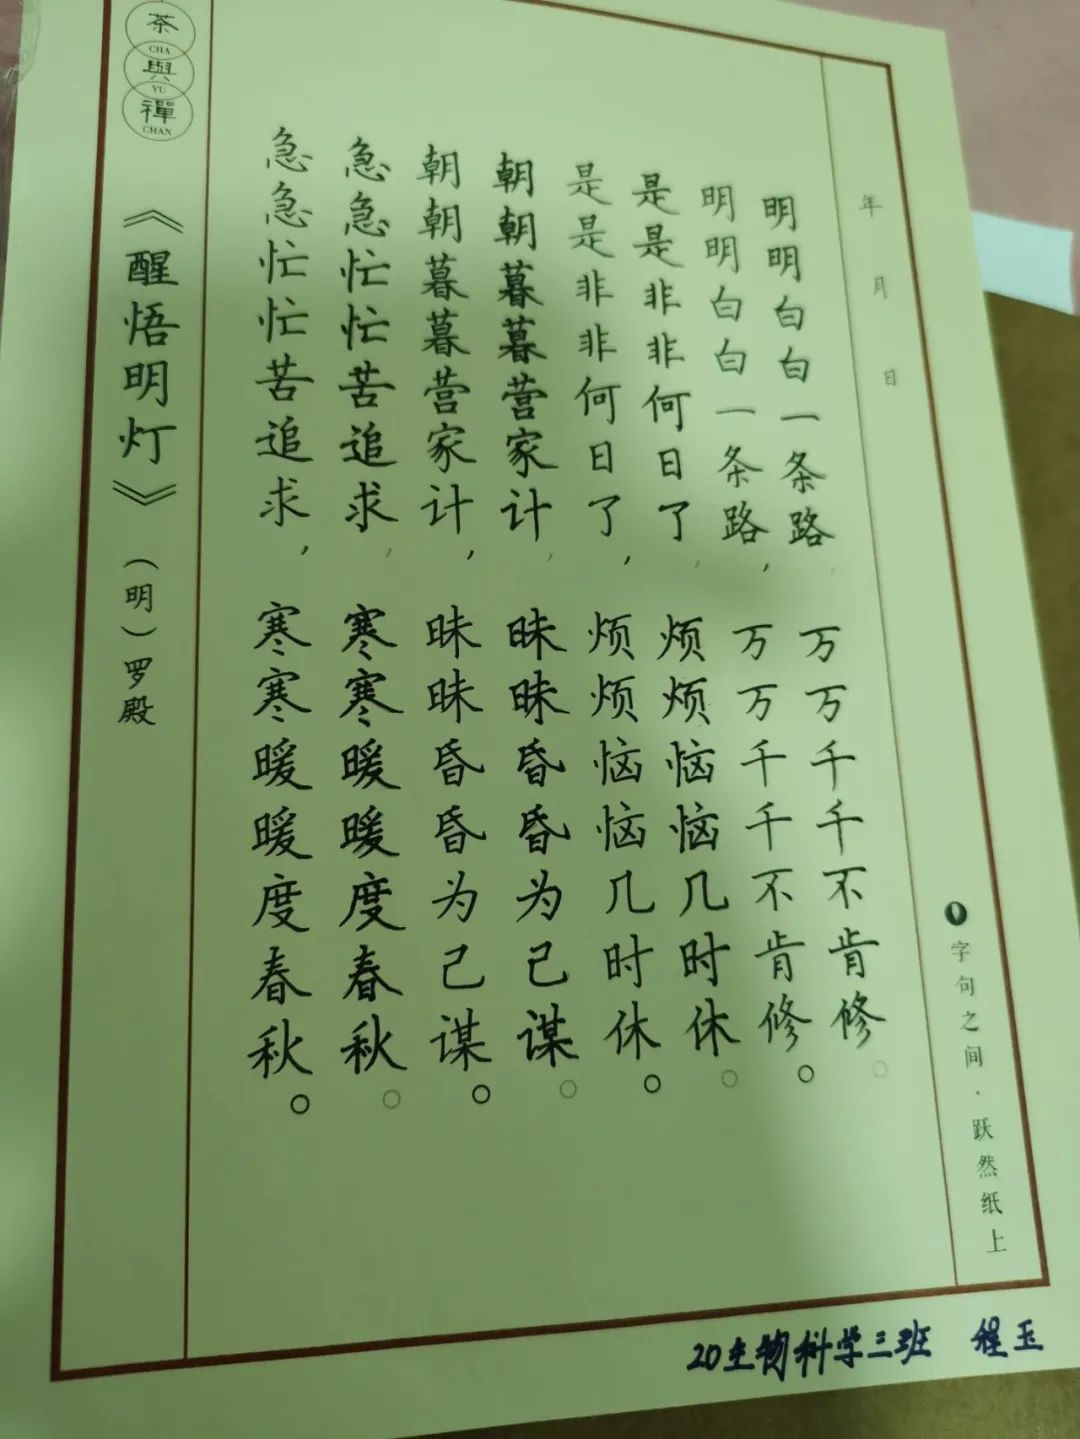 茶
CHA
與
YU
禪
CHAN
《醒悟明灯》(明)罗殿
急急忙忙苦追求,寒寒暖暖度春秋。
急急忙忙苦追求,寒寒暖暖度春秋。
朝朝暮暮营家计,昧昧昏昏为己谋。
朝朝暮暮营家计,昧昧昏昏为己谋。
是是非非何日了,烦烦恼恼几时休。
是是非非何日了,烦烦恼恼几时休。
明明白白一条路,万万千千不肯修。
明明白白一条路,万万千千不肯修。
年 月 日
字句之间·跃然纸上
20生物科学三班 程玉